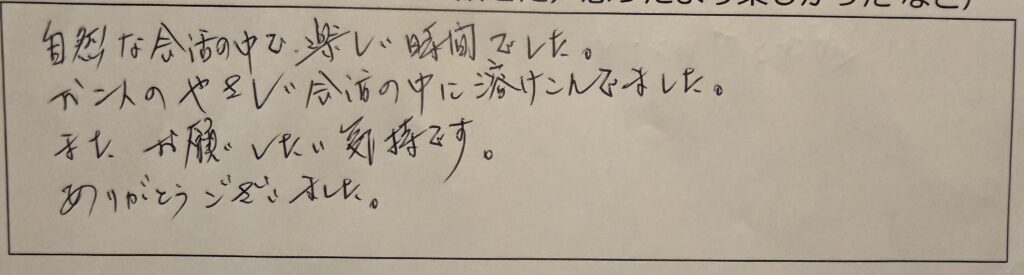 自然な会話の中で楽しい時間でした。
ガントのやさしい会話の中に溶けこんでました。
また お願いしたい気持です。
ありがとうございました。